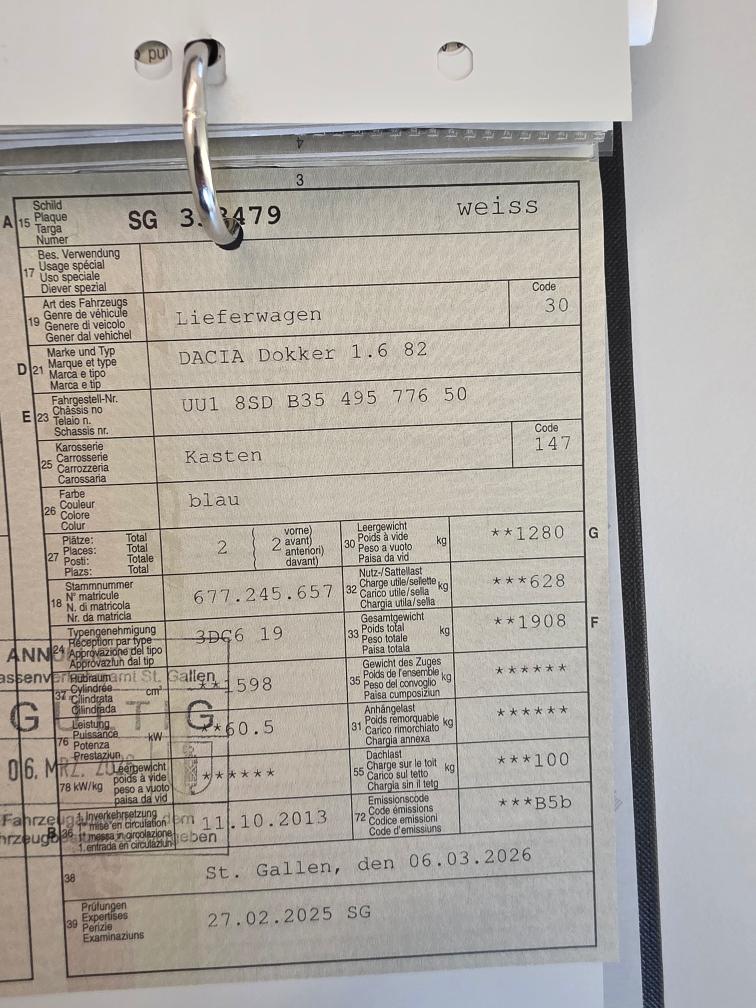 3
A 15 Schild
Plaque
Targa
Numer
SG 479
weiss
17 Bes. Verwendung
Usage spécial
Uso speciale
Diever spezial
19 Art des Fahrzeugs
Genre de véhicule
Genere di veicolo
Gener dal vehichel
Lieferwagen
Code
30
D 21 Marke und Typ
Marque et type
Marca e tipo
Marca e tip
DACIA Dokker 1.6 82
E 23 Fahrgestell-Nr.
Châssis no
Telaio n.
Schassis nr.
UU1 8SD B35 495 776 50
25 Karosserie
Carrosserie
Carrozzeria
Carossaria
Kasten
Code
147
26 Farbe
Couleur
Colore
Colur
blau
27 Plätze: Total
Places: Total
Posti: Totale
Plazs: Total
2 ( 2 vorne)
avant)
anteriori)
davant)
30 Leergewicht
Poids à vide
Peso a vuoto
Paisa da vid
kg
**1280 G
18 Stammnummer
N° matricule
N. di matricola
Nr. da matricla
677.245.657
32 Nutz-/Sattellast
Charge utile/sellette
Carico utile/sella
Chargia utila/sella
kg
***628
24 Typengenehmigung
Réception par type
Approvazione del tipo
Approvaziun dal tip
3DC6 19
33 Gesamtgewicht
Poids total
Peso totale
Paisa totala
kg
**1908 F
37 Hubraum
Cylindrée
Cilindrata
Cilindrada
cm³
**1598
35 Gewicht des Zuges
Poids de l'ensemble
Peso del convoglio
Paisa cumposiziun
kg
******
76 Leistung
Puissance
Potenza
Prestaziun
kW
**60.5
31 Anhängelast
Poids remorquable
Carico rimorchiato
Chargia annexa
kg
******
78 kW/kg Leergewicht
poids à vide
peso a vuoto
paisa da vid
******
55 Dachlast
Charge sur le toit
Carico sul tetto
Chargia sin il tetg
kg
***100
B 36 1. Inverkehrsetzung
1re mise en circulation
1. messa in circolazione
1. entrada en circulaziun
11.10.2013
72 Emissionscode
Code émissions
Codice emissioni
Code d'emissiuns
***B5b
38
St. Gallen, den 06.03.2026
39 Prüfungen
Expertises
Perizie
Examinaziuns
27.02.2025 SG
St. Gallen
06. MRZ.